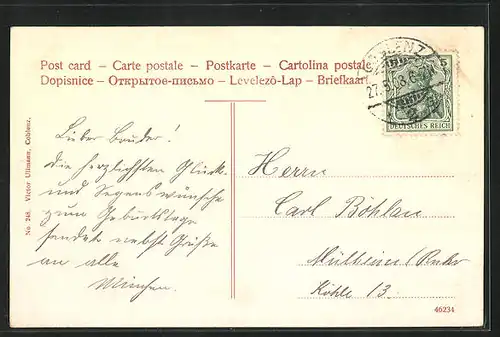 Post card – Carte postale – Postkarte – Cartolina postale
Dopisnice – Открытое-письмо – Levelező-Lap – Briefkaart
5
DEUTSCHES REICH
No. 248. Victor Ullmann, Coblenz.
Lieber Bruder!
Die herzlichsten Glück-
und Segenswünsche
zum Geburtstage
sendet nebst Grüße
an alle
Herrn
Carl Böhlau
Mülheim (Ruhr
13.
46234